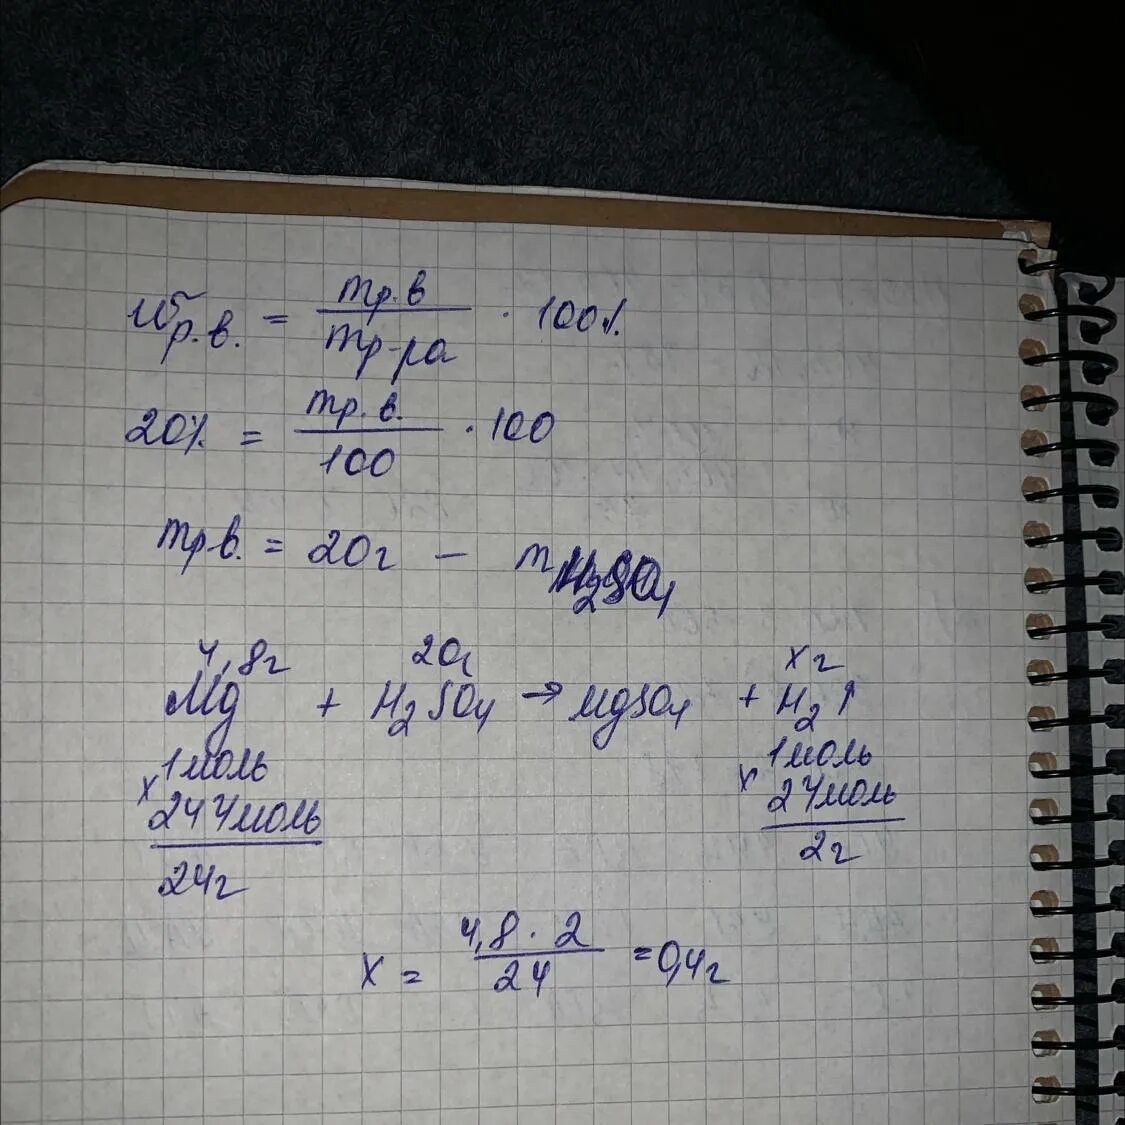 ω р.в. = mр.в / mр-ра · 100%
20% = mр.в. / 100 · 100
mр.в. = 20г – m H₂SO₄
4,8г 20г x г
Mg + H₂SO₄ → MgSO₄ + H₂↑
1моль 1моль
x 24г/моль x 2г/моль
24г 2г
x = 4,8 · 2 / 24 = 0,4г